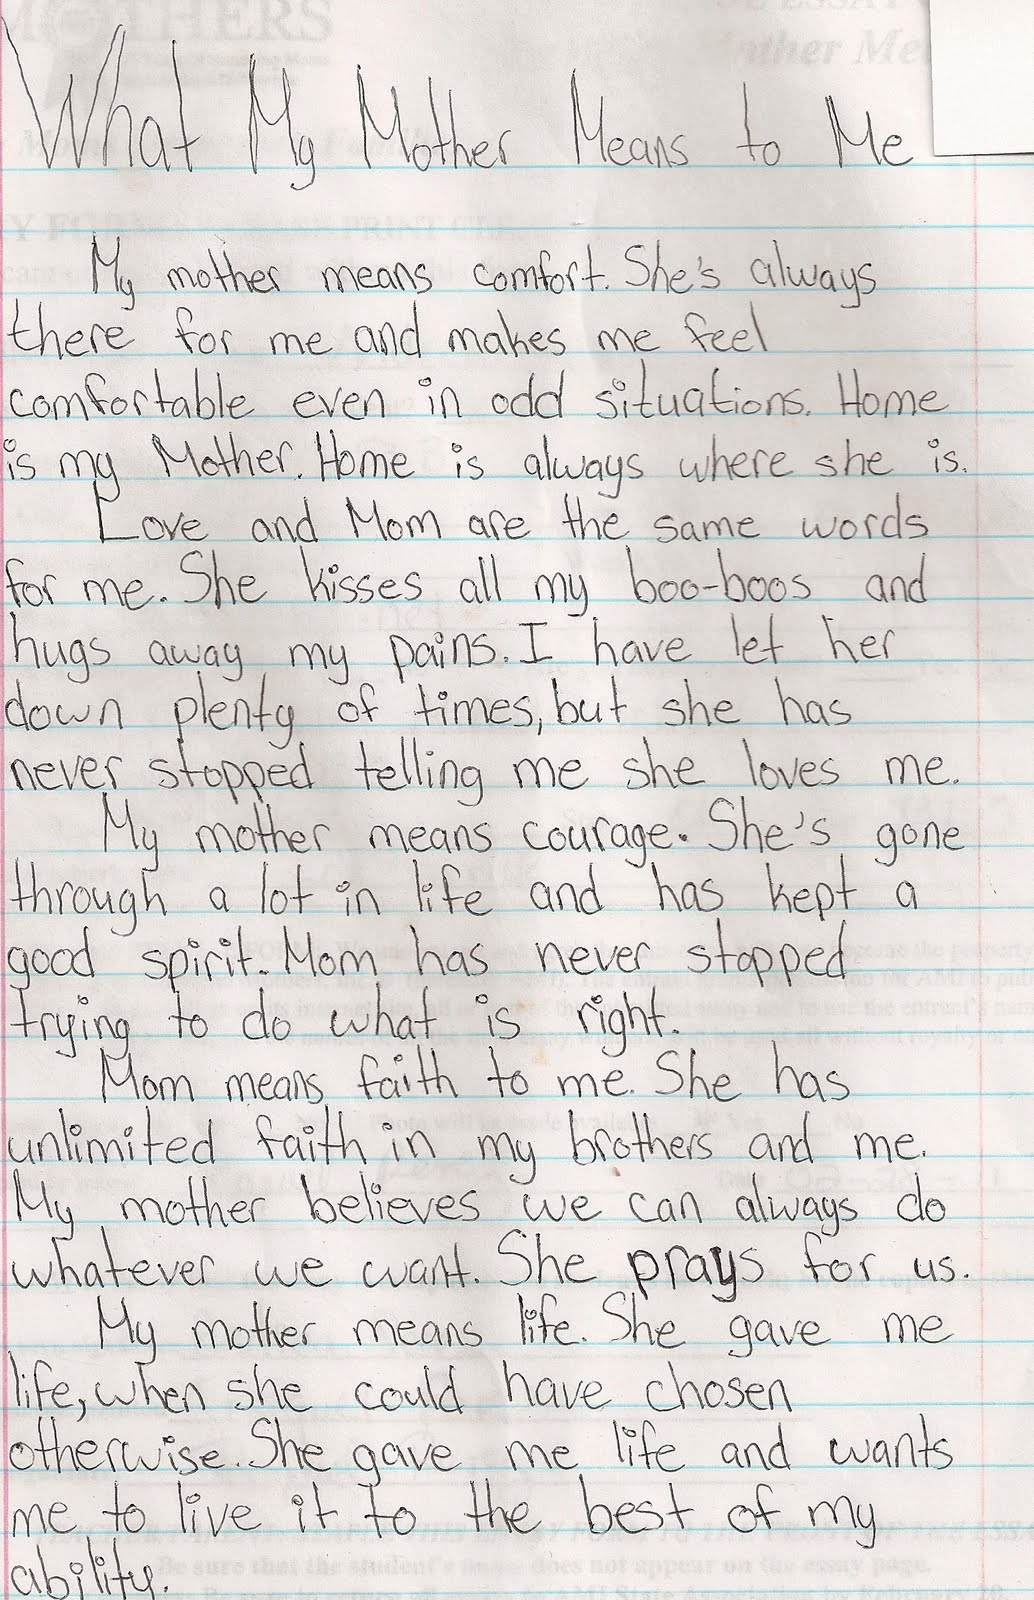 What My Mother Means to Me
My mother means comfort. She's always
there for me and makes me feel
comfortable even in odd situations. Home
is my Mother. Home is always where she is.
Love and Mom are the same words
for me. She kisses all my boo-boos and
hugs away my pains. I have let her
down plenty of times, but she has
never stopped telling me she loves me.
My mother means courage. She's gone
through a lot in life and has kept a
good spirit. Mom has never stopped
trying to do what is right.
Mom means faith to me. She has
unlimited faith in my brothers and me.
My mother believes we can always do
whatever we want. She prays for us.
My mother means life. She gave me
life, when she could have chosen
otherwise. She gave me life and wants
me to live it to the best of my
ability.
Be sure that the student's name does not appear on the essay page.